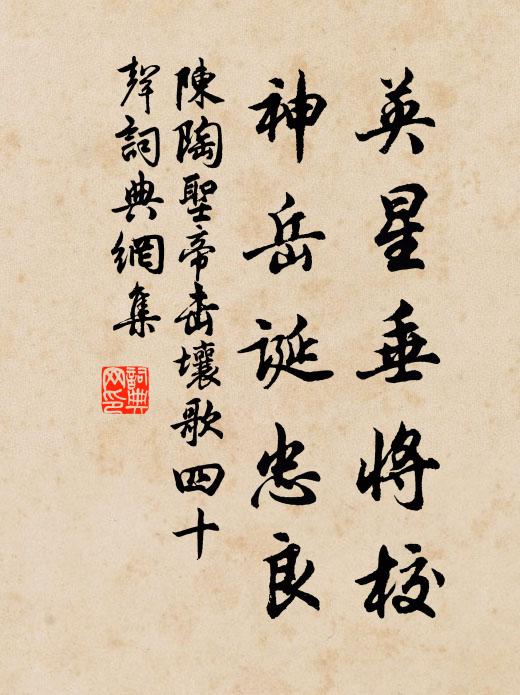 英星垂將校
神岳誕忠良
陳陶聖帝击壤歌四十
聲詞典網集
詞典
网印